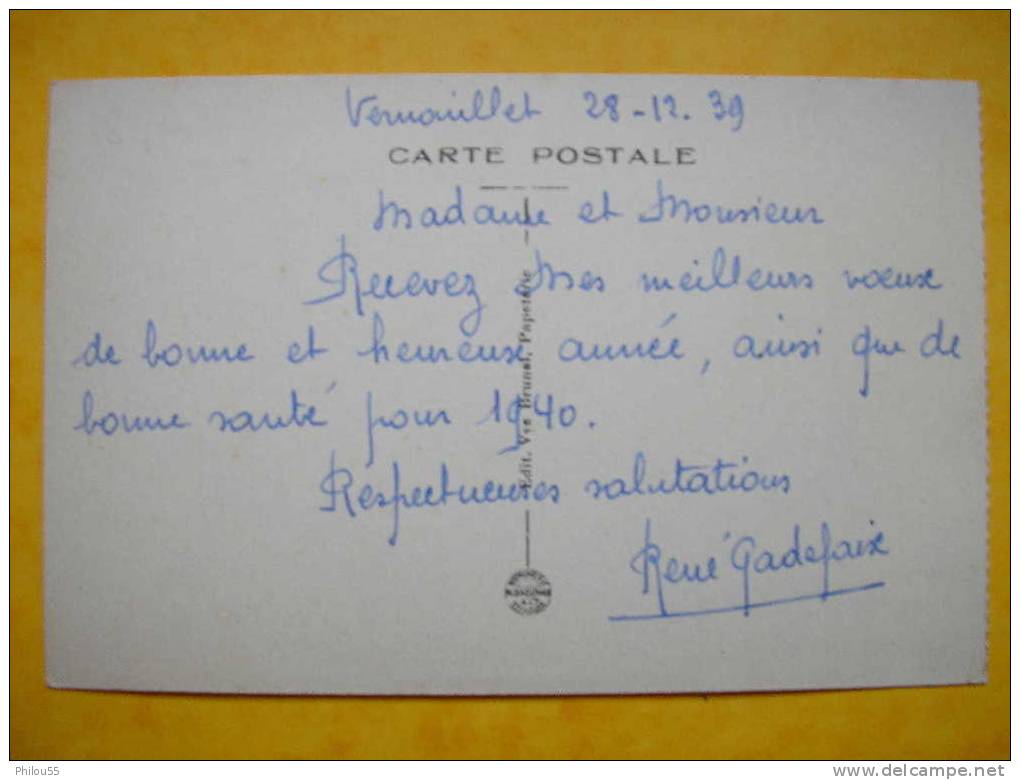 Vernouillet 28-12.39
CARTE POSTALE
Madame et Monsieur
Recevez Mes meilleurs vœux
de bonne et heureuse année, ainsi que de
bonne santé pour 1940.
Respectueuses salutations
René Gadefaix
Edit. Vve Brunet, Papeterie
Philou55
www.delcampe.net